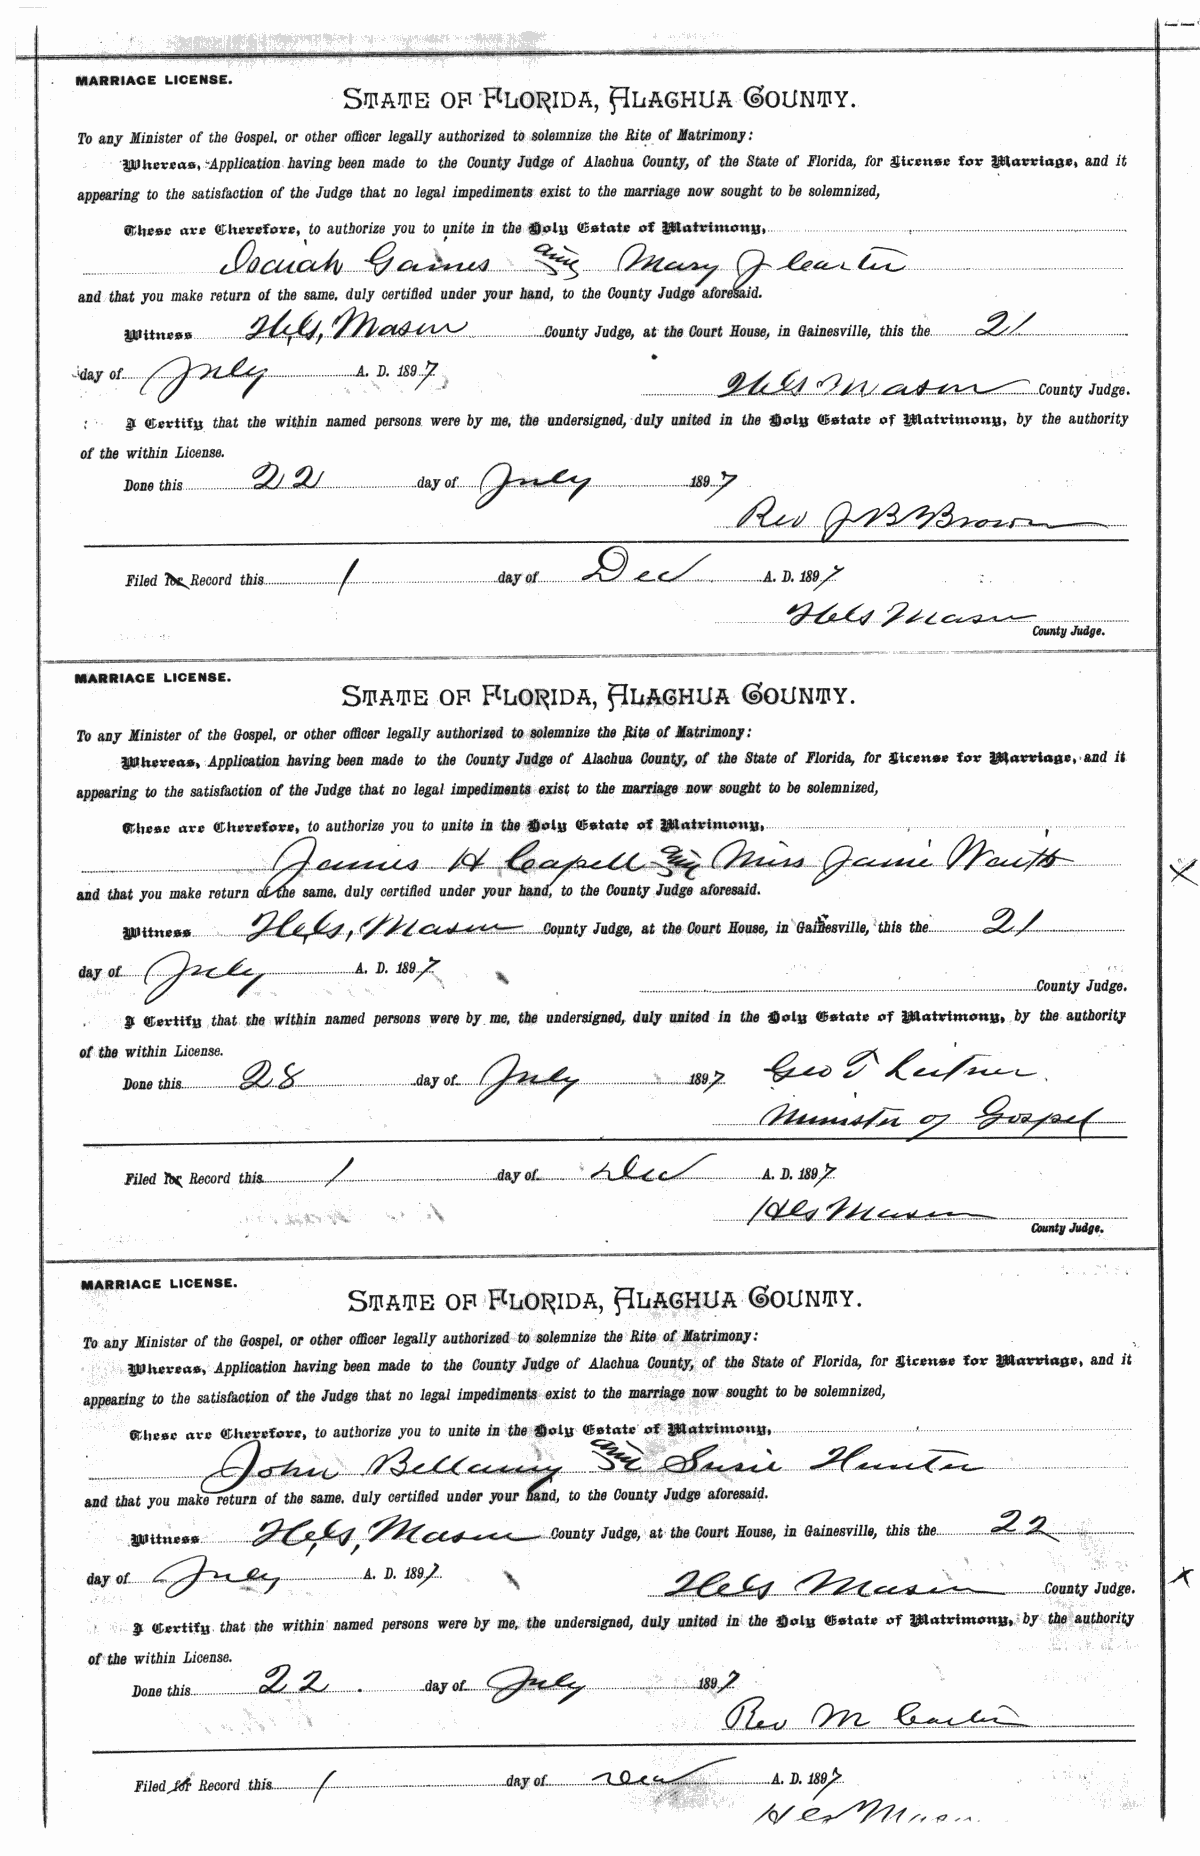 MARRIAGE LICENSE.
STATE OF FLORIDA, ALACHUA COUNTY.
To any Minister of the Gospel, or other officer legally authorized to solemnize the Rite of Matrimony:
Whereas, Application having been made to the County Judge of Alachua County, of the State of Florida, for License for Marriage, and it
appearing to the satisfaction of the Judge that no legal impediments exist to the marriage now sought to be solemnized,
These are Therefore, to authorize you to unite in the Holy Estate of Matrimony,
Isaiah Gaines and Mary J Carter
and that you make return of the same, duly certified under your hand, to the County Judge aforesaid.
Witness H.C.S, Mason County Judge, at the Court House, in Gainesville, this the 21
day of July A. D. 1897
Mason County Judge.
I Certify that the within named persons were by me, the undersigned, duly united in the Holy Estate of Matrimony, by the authority
of the within License.
Done this 22 day of July 1897
Rev J B Brown
Filed for Record this 1 day of Dec A. D. 1897
Mason
County Judge.
MARRIAGE LICENSE.
STATE OF FLORIDA, ALACHUA COUNTY.
To any Minister of the Gospel, or other officer legally authorized to solemnize the Rite of Matrimony:
Whereas, Application having been made to the County Judge of Alachua County, of the State of Florida, for License for Marriage, and it
appearing to the satisfaction of the Judge that no legal impediments exist to the marriage now sought to be solemnized,
These are Therefore, to authorize you to unite in the Holy Estate of Matrimony,
James H Capell and Miss Janie
and that you make return of the same, duly certified under your hand, to the County Judge aforesaid.
Witness Mason County Judge, at the Court House, in Gainesville, this the 21
day of July A. D. 1897
County Judge.
I Certify that the within named persons were by me, the undersigned, duly united in the Holy Estate of Matrimony, by the authority
of the within License.
Done this 28 day of July 1897 Geo T Leitner
Minister of Gospel
Filed for Record this 1 day of Dec A. D. 1897
Mason
County Judge.
MARRIAGE LICENSE.
STATE OF FLORIDA, ALACHUA COUNTY.
To any Minister of the Gospel, or other officer legally authorized to solemnize the Rite of Matrimony:
Whereas, Application having been made to the County Judge of Alachua County, of the State of Florida, for License for Marriage, and it
appearing to the satisfaction of the Judge that no legal impediments exist to the marriage now sought to be solemnized,
These are Therefore, to authorize you to unite in the Holy Estate of Matrimony,
John Bellamy and Susie Hunter
and that you make return of the same, duly certified under your hand, to the County Judge aforesaid.
Witness Mason County Judge, at the Court House, in Gainesville, this the 22
day of July A. D. 1897
Mason County Judge.
I Certify that the within named persons were by me, the undersigned, duly united in the Holy Estate of Matrimony, by the authority
of the within License.
Done this 22 day of July 1897
Rev M Carter
Filed for Record this 1 day of Dec A. D. 1897
Mason